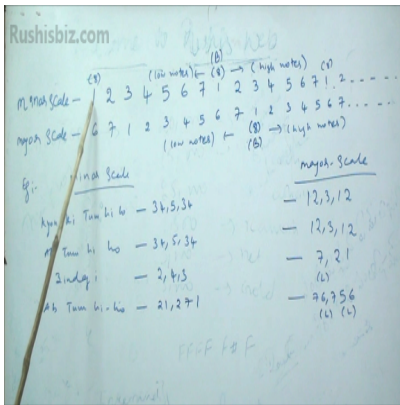 Rushisbiz.com
(8) (low notes) ← (8) → (high notes) (8)
(B)
Minor Scale - 1 2 3 4 5 6 7 1 2 3 4 5 6 7 1 2 - - - - -
Major Scale - 6 7 1 2 3 4 5 6 7 1 2 3 4 5 6 7 - - - - -
(low notes) ← (8) → (high notes)
(B)
Eg:- Minor Scale Major-Scale
Kyun Ki Tum hi ho - 34,5,34 - 12,3,12
Ab Tum hi ho - 34,5,34 - 12,3,12
Zindagi - 2,4,3 - 7,21
(L)
Ab Tum hi-ho - 21,271 - 76,756
(L) (L)